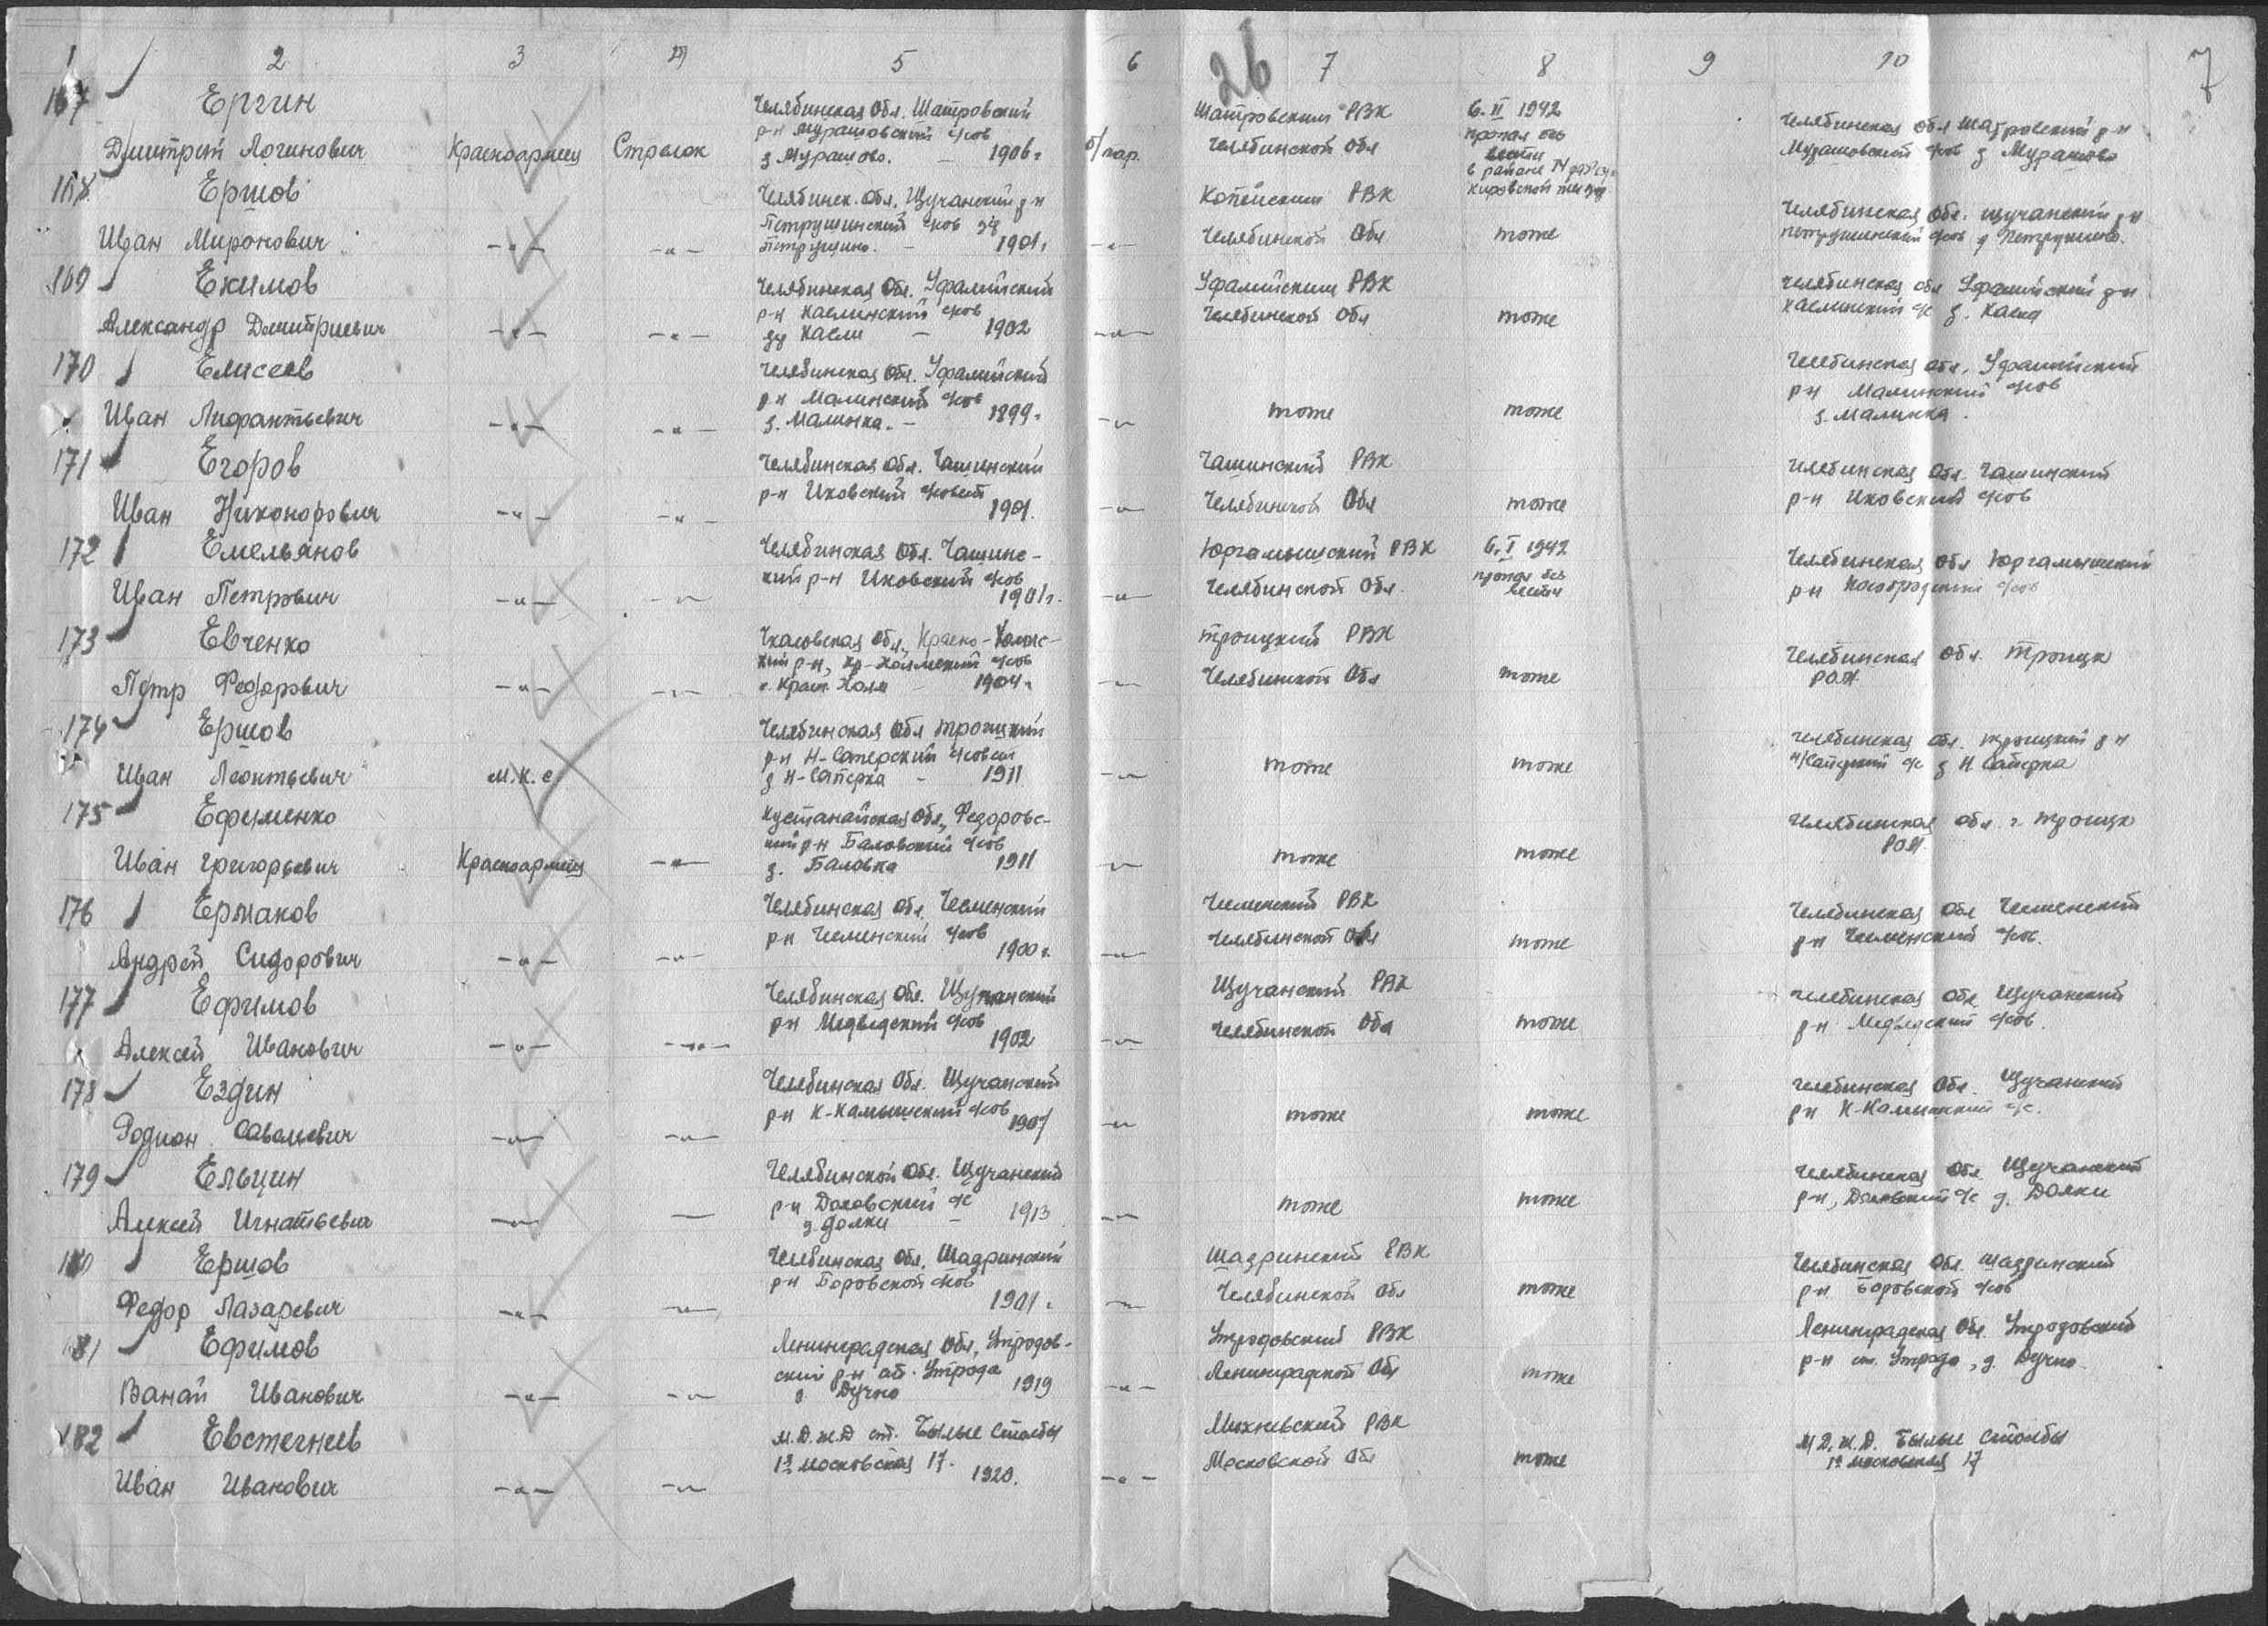 1 2 3 4 5 26 6 7 8 9 10 7
167 Ергин
Дмитрий Логинович Красноармеец Стрелок
Челябинская Обл. Шатровский
р-н Мурашовский с/сов
д Мурашово. – 1906г
б/пар.
Шатровским РВК
Челябинской Обл
6.II 1942
пропал без
вести
в районе
Кировской
Челябинская обл Шатровский р-н
Мурашовский с/сов д Мурашово
168 Ершов
Иван Миронович –"– –"–
Челябинск. Обл, Щучанский р-н
Петрушинский с/сов
Петрушино. – 1901г
–"–
Копейским РВК
Челябинской Обл
тоже
Челябинская Обл. Щучанский р-н
Петрушинский с/сов д Петрушино.
169 Екимов
Александр Дмитриевич –"– –"–
Челябинская Обл. Уфалийский
р-н Каслинский с/сов
Касли – 1902
–"–
Уфалийским РВК
Челябинской Обл
тоже
Челябинская обл Уфалийский р-н
Каслинский с/с
170 Елисеев
Иван –"– –"–
Челябинская Обл. Уфалийский
р-н Малинский с/сов
д. Малинка. – 1899г
–"–
тоже
тоже
Челябинская Обл. Уфалийский
р-н Малинский с/сов
д. Малинка.
171 Егоров
Иван Никонорович –"– –"–
Челябинская Обл. Чашинский
р-н Иковский с/совет
1901.
–"–
Чашинский РВК
Челябинской Обл
тоже
Челябинская Обл. Чашинский
р-н Иковский с/сов
172 Емельянов
Иван Петрович –"– –"–
Челябинская Обл. Чашинс-
кий р-н Иковский с/сов
1901г.
–"–
Юргамышский РВК
Челябинской Обл.
6.I 1942
пропал без
вести
Челябинская Обл Юргамышский
р-н с/сов
173 Евченко
Петр Федорович –"– –"–
Чкаловская Обл., Красно-Холмс-
кий р-н, Кр-Холмский с/сов
с. Красн. Холм – 1904г
–"–
Троицкий РВК
Челябинской Обл
тоже
Челябинская Обл. Троицк
174 Ершов
Иван Леонтьевич м.к.с
Челябинская Обл Троицкий
р-н Н-Саперский с/совет
д Н-Саперка – 1911
–"–
тоже
тоже
Челябинская Обл. Троицкий р-н
с/с д Н Саперка
175 Ефименко
Иван Григорьевич Красноармеец –"–
Кустанайская Обл., Федоровс-
кий р-н Баловский с/сов
д. Баловка 1911
–"–
тоже
тоже
Челябинская обл. г. Троицк
176 Ермаков
Андрей Сидорович –"– –"–
Челябинская Обл, Чесменский
р-н Чесменский с/сов
1900г.
–"–
Чесменский РВК
Челябинской Обл
тоже
Челябинская Обл Чесменский
р-н Чесменский с/сов.
177 Ефимов
Алексей Иванович –"– –"–
Челябинская Обл. Щучанский
р-н Медведский с/сов
1902
–"–
Щучанский РВК
Челябинской Обл
тоже
Челябинская обл Щучанский
р-н Медведский с/сов.
178 Ездин
Родион Савельевич –"– –"–
Челябинская Обл. Щучанский
р-н К-Камышский с/сов
1907
–"–
тоже
тоже
Челябинская Обл. Щучанский
р-н К-Камышский с/с.
179 Ельцин
Алексей Игнатьевич –"– —
Челябинской Обл. Щучанский
р-н Доховский с/с
д. Долки – 1913
–"–
тоже
тоже
Челябинская Обл Щучанский
р-н, с/с д. Долки
180 Ершов
Федор Лазаревич –"– –"–
Челябинская Обл, Шадринский
р-н Боровской с/сов
1901г.
–"–
Шадринский РВК
Челябинской Обл
тоже
Челябинская Обл. Шадринский
р-н Боровской с/сов
181 Ефимов
Иванович –"– –"–
Ленинградская Обл, Утродов-
ский р-н ст. Утрода
д Дучно 1919
–"–
Утродовский РВК
Ленинградской Обл
тоже
Ленинградская Обл. Утродовский
р-н ст. Утрода, д. Дучно.
182 Евстегнеев
Иван Иванович –"– –"–
М.Д.ж.д ст. Былые Столбы
1я Московская 17.
1920.
–"–
Михневский РВК
Московской Обл
тоже
М.Д.ж.д. Былые Столбы
1я Московская 17